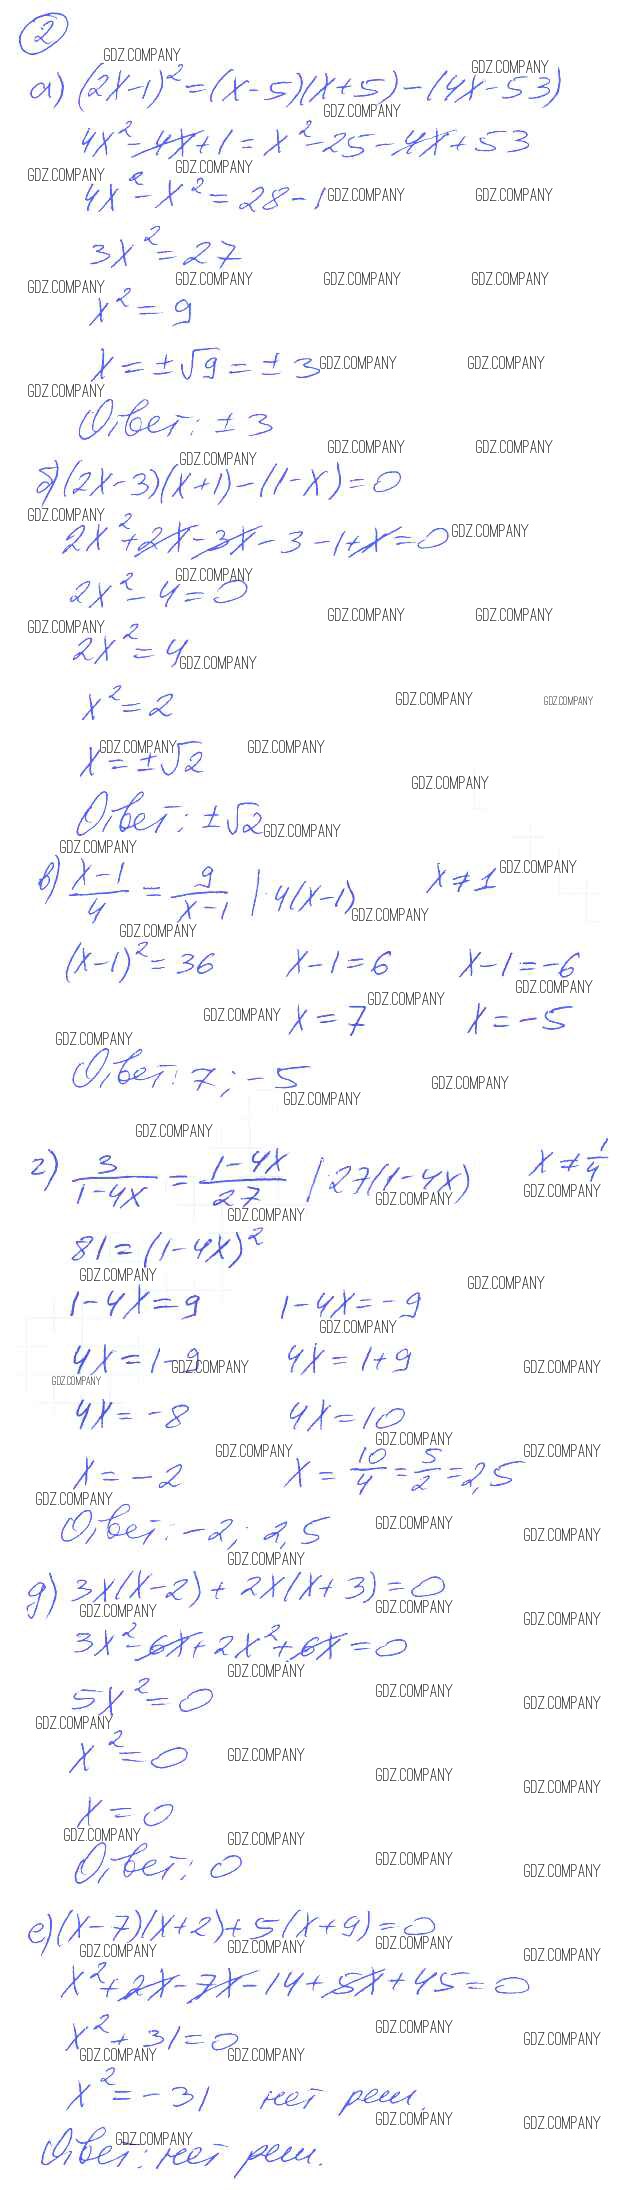 2
а) (2x-1)² = (x-5)(x+5) - (4x-53)
4x² - 4x + 1 = x² - 25 - 4x + 53
4x² - x² = 28 - 1
3x² = 27
x² = 9
x = ±√9 = ±3
Ответ: ±3
б) (2x-3)(x+1) - (1-x) = 0
2x² + 2x - 3x - 3 - 1 + x = 0
2x² - 4 = 0
2x² = 4
x² = 2
x = ±√2
Ответ: ±√2
в) (x-1)/4 = 9/(x-1) | · 4(x-1) x ≠ 1
(x-1)² = 36 x-1 = 6 x-1 = -6
x = 7 x = -5
Ответ: 7; -5
г) 3/(1-4x) = (1-4x)/27 | · 27(1-4x) x ≠ 1/4
81 = (1-4x)²
1-4x = 9 1-4x = -9
4x = 1-9 4x = 1+9
4x = -8 4x = 10
x = -2 x = 10/4 = 5/2 = 2,5
Ответ: -2; 2,5
д) 3x(x-2) + 2x(x+3) = 0
3x² - 6x + 2x² + 6x = 0
5x² = 0
x² = 0
x = 0
Ответ: 0
е) (x-7)(x+2) + 5(x+9) = 0
x² + 2x - 7x - 14 + 5x + 45 = 0
x² + 31 = 0
x² = -31 нет реш.
Ответ: нет реш.
GDZ.COMPANY